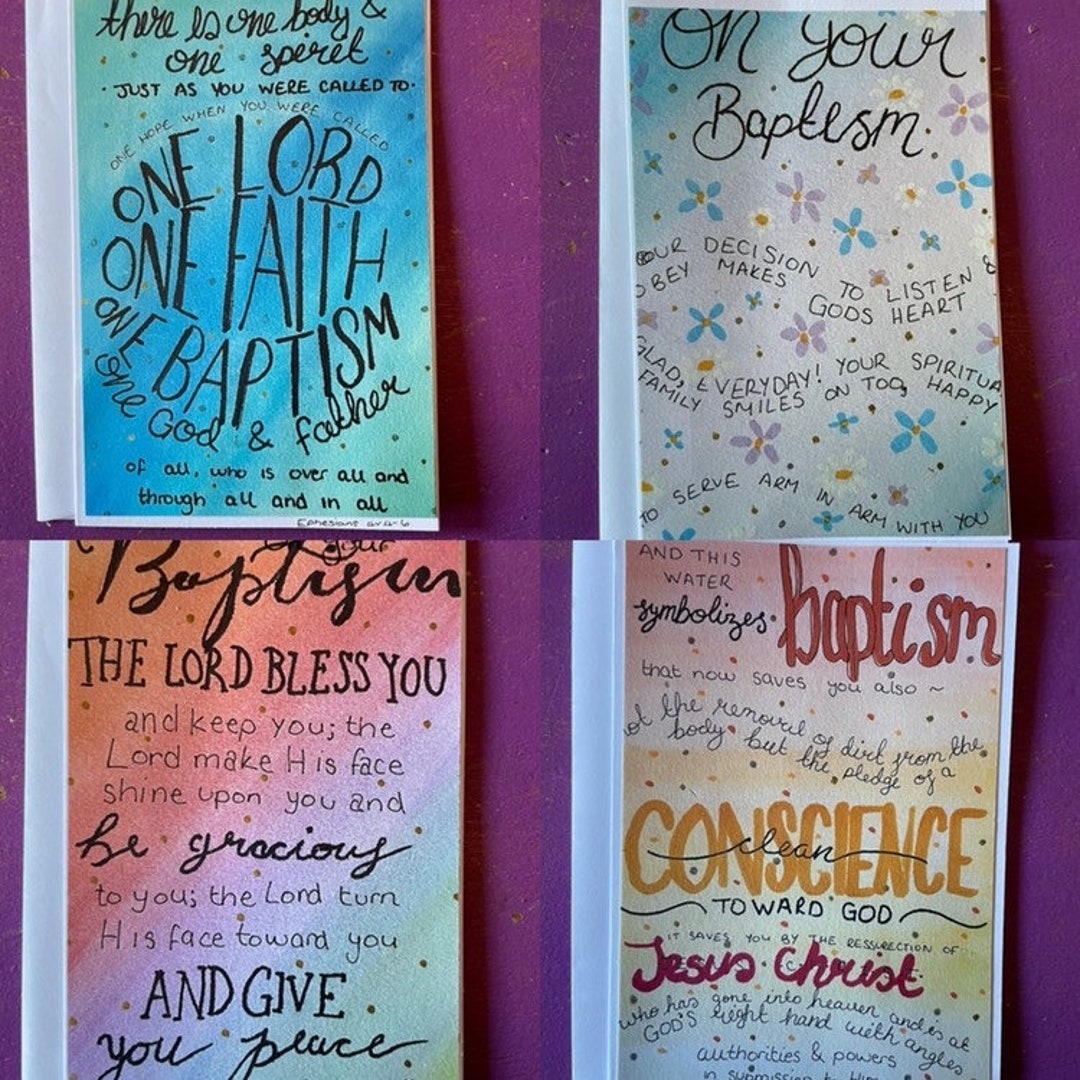 there is one body &
one spirit
· JUST AS YOU WERE CALLED TO ·
ONE HOPE WHEN YOU WERE CALLED
ONE LORD
ONE FAITH
ONE BAPTISM
one God & father
of all, who is over all and
through all and in all
Ephesians
On your
Baptism
YOUR DECISION TO LISTEN &
OBEY MAKES GODS HEART
GLAD, EVERYDAY! YOUR SPIRITUA
FAMILY SMILES ON TOO, HAPPY
TO SERVE ARM IN ARM WITH YOU
your
Baptism
THE LORD BLESS YOU
and keep you; the
Lord make His face
shine upon you and
be gracious
to you; the Lord turn
His face toward you
AND GIVE
you peace
AND THIS
WATER
symbolizes baptism
that now saves you also ~
not the removal of dirt from the
body but the pledge of a
clean
CONSCIENCE
TOWARD GOD
IT SAVES YOU BY THE RESSURECTION OF
Jesus Christ
who has gone into heaven and is at
GOD'S right hand with angles
authorities & powers
in submission to Him